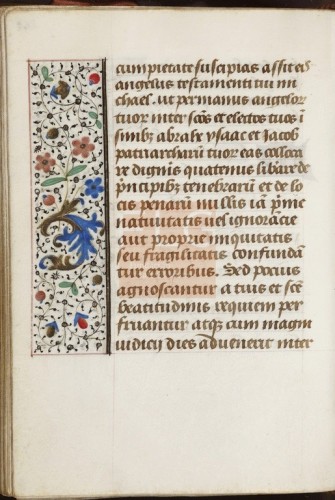 cum pietate suscipias assit eis
angelus testamenti tui mi
chael. ut per manus angelor
tuor inter scos et electos tuos i
sinibz abrahe ysaac et Jacob
patriarcharum tuor eas colloca
re digneris quatenus liberate de
pncipibz tenebraru et de lo
cis penaru nullis ia pme
natiuitatis uel ignoracie
aut proprie iniquitatis
seu fragilitatis confundan
tur erroribus. Sed pocius
agnoscantur a tuis et sce
beatitudinis requiem per
fruantur atqz cum magni
iudicij dies aduenerit inter